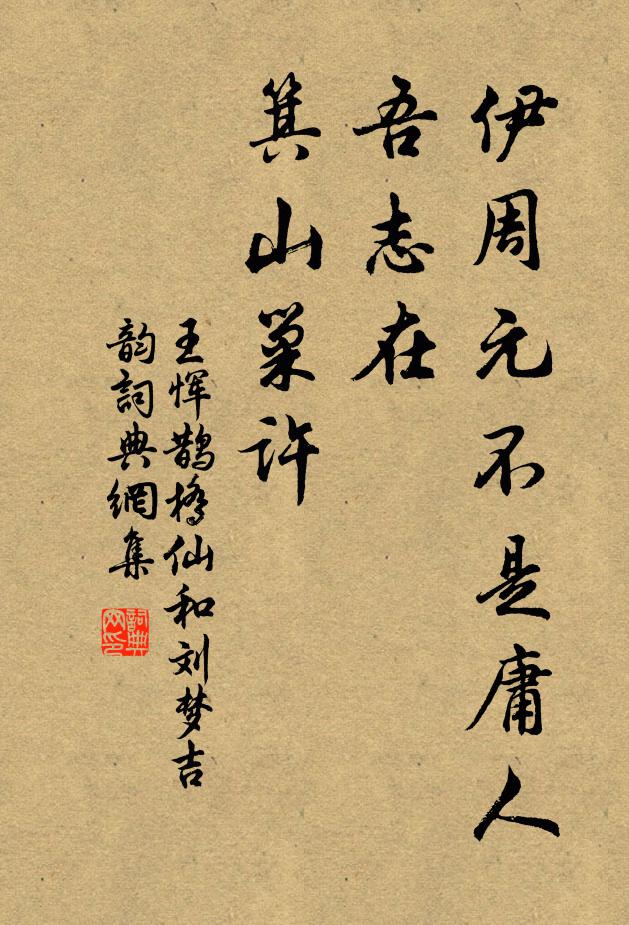 伊周元不是庸人
吾志在
箕山巢许
王恽鹊桥仙和刘梦吉
韵词典網集
詞典
网印